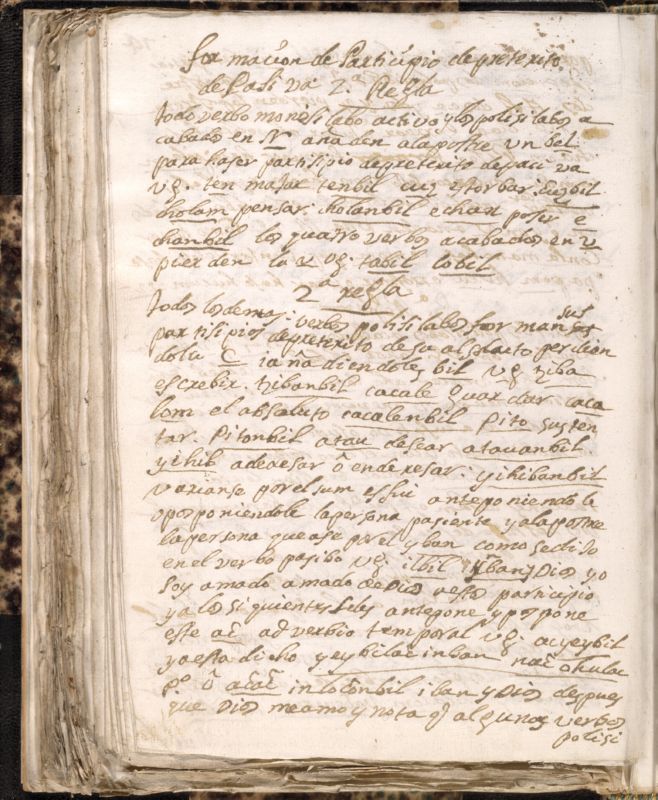 formacion de Participio de preterito
de Pasiva 1. Regla
todo verbo monosilabo activo y los polisilabos a
cabados en N añaden a la postre un bel
para haser partisipio de preterito de paciva
vg. ten majar tenbil cuz estorbar. cuzbil
cholam pensar. cholanbil echan poser e
chanbil los quatro verbos acabados en v
pierden la v vg. tabil lobil
2ª regla
todos los demas verbos polisilabos forman sus
partisipios de preterito de su absoluto perdien
dolu C i añadiendole, bil vg tziba
escrebir. tzibanbil cacale guardar caca
lom el absoluto cacalenbil Pito susten
tar. Pitonbil atau desear atauanbil
yihib aderesar ô enderesar. yihibanbil
varianse por el sum es fui anteponiendole
o posponiendole la persona pasiente y a la postre
la persona que ase por el yban como se dijo
en el verbo pasibo vg. ilbil yban Dios yo
soy amado amado de Dios y este participio
y a los siguientes se les antepone y pospone
este ac adverbio temporal vg. acyeybil
ya esta dicho yeybilac inban nac ohulac
pº ô acac inloconbil iban y Dios despues
que Dios me amo y nota q algunos verbos
polisi